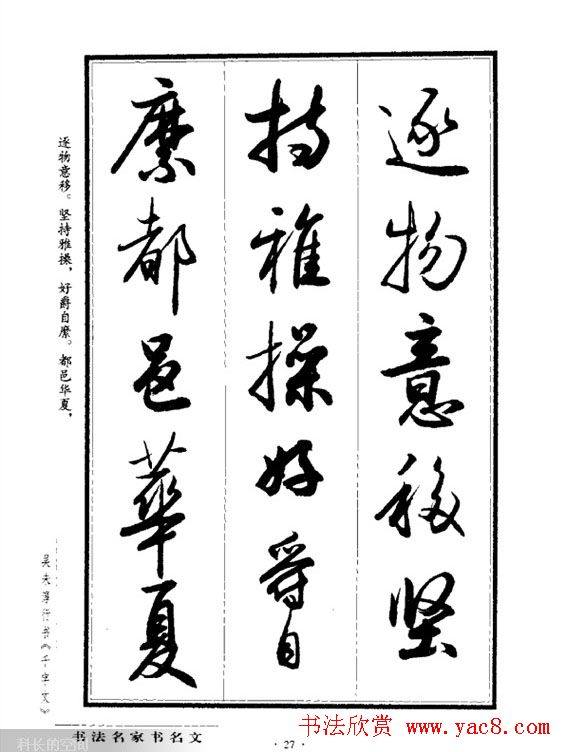 逐物意移坚
持雅操好爵自
縻都邑華夏
逐物意移。坚持雅操，好爵自縻。都邑华夏，
吴未淳行书《千字文》
书法名家书名文
·27·
书法欣赏 www.yac8.com
科长的空间